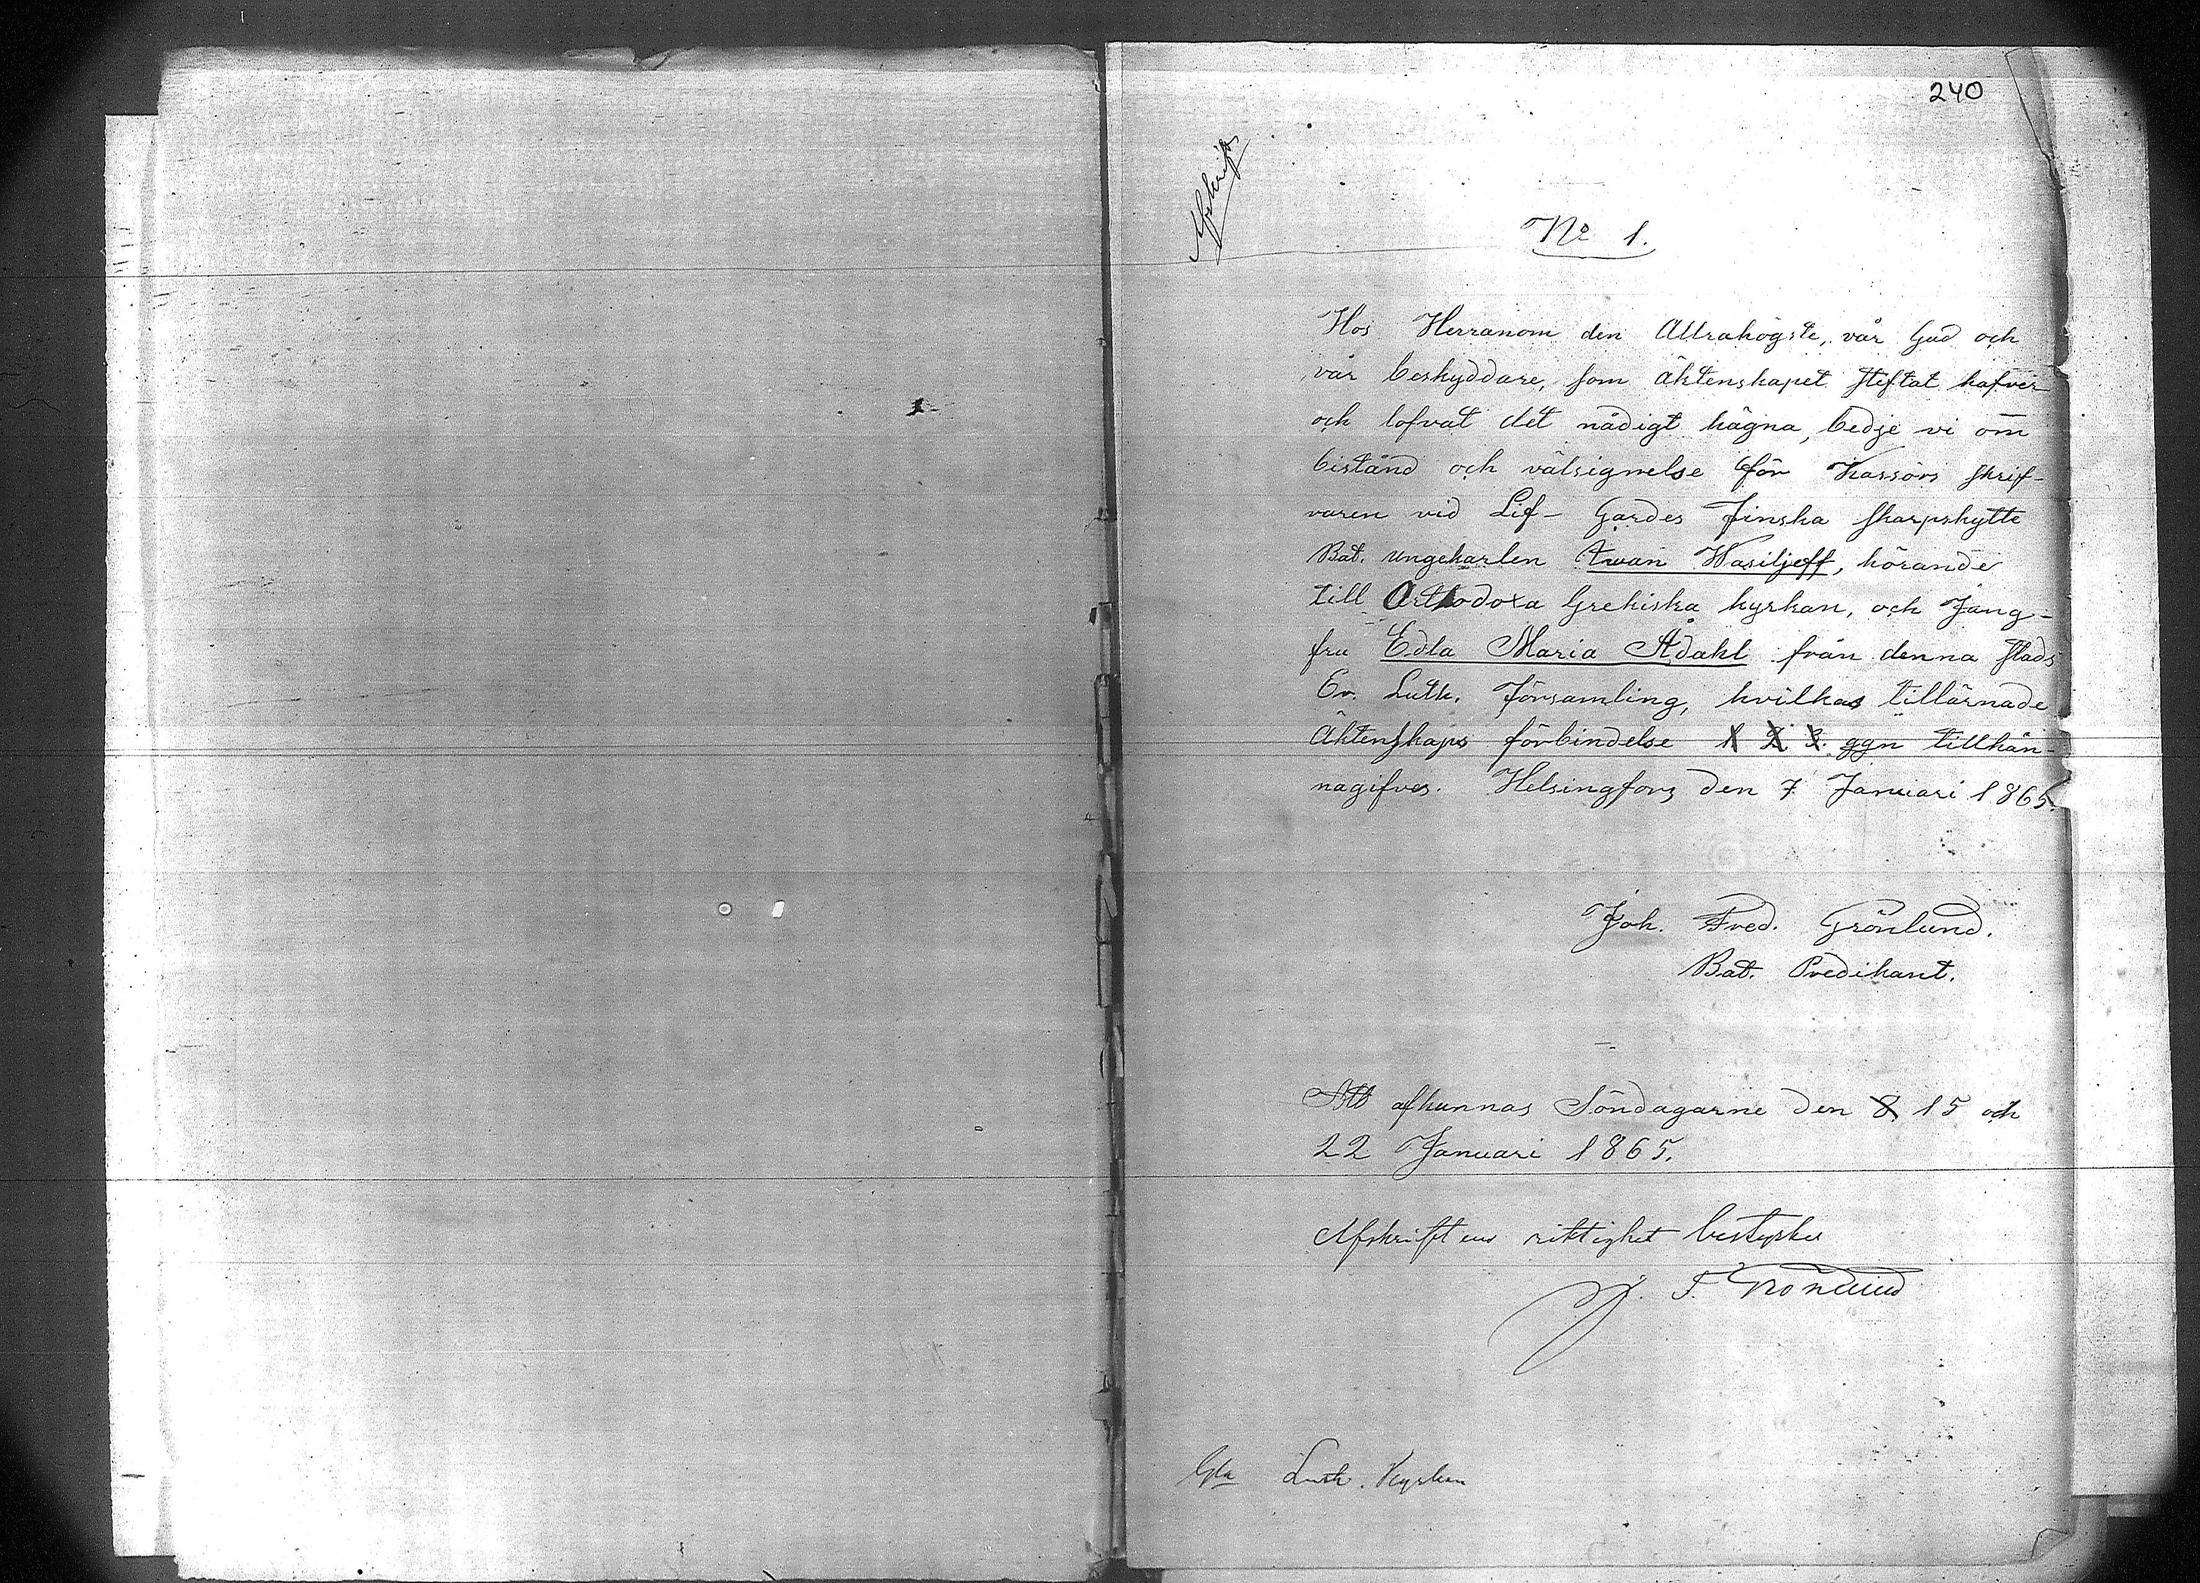 240
Afskrift
No 1.
Hos Herranom den Allrahögste, vår Gud och
vår beskyddare, som äktenskapet stiftat hafver
och lofvat det nådigt hägna, bedje vi om
bistånd och välsignelse för Kassörs skrif-
varen vid Lif- Gardes Finska skarpskytte
Bat. ungekarlen Iwan Wasiljeff, hörande
till Orthodoxa Grekiska kyrkan, och Jung-
fru Edla Maria Ådahl från denna stads
Ev. Luth. Församling, hvilkas tillärnade
Äktenskaps förbindelse 1 2 3. ggn tillkän-
nagifves. Helsingfors den 7 Januari 1865.
Joh. Fred. Grönlund.
Bat. Predikant.
Att afkunnas Söndagarne den 8 15 och
22 Januari 1865.
Afskriftens riktighet bestyrker
J. F. Grönlund
Gla Luth. Kyrkan